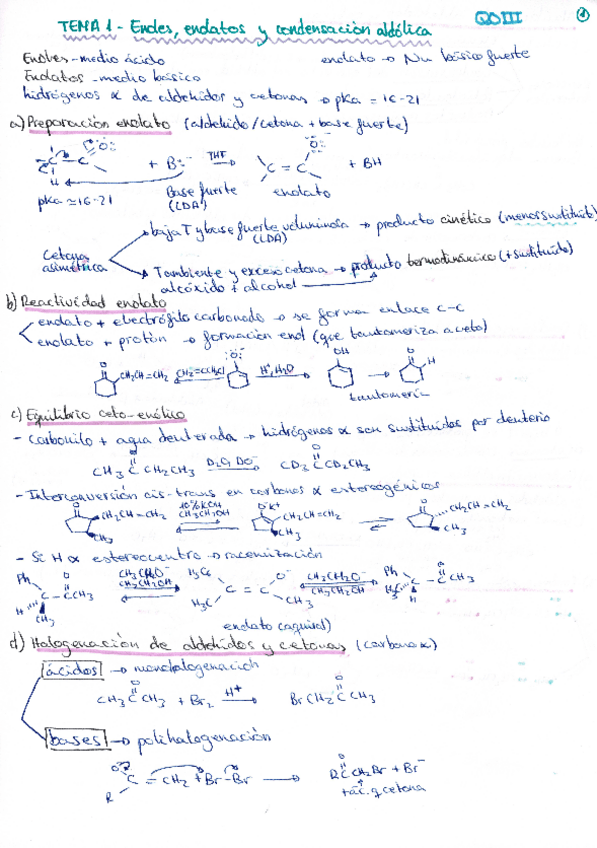 QOIII 1
TEMA 1 - Enoles, enolatos y condensación aldólica
Enoles - medio ácido enolato → Nu básico fuerte
Enolatos - medio básico
hidrógenos α de aldehídos y cetonas → pKa = 16-21
a) Preparación enolato (aldehído/cetona + base fuerte)
C - C + B:⁻ THF → C = C + BH
H
pKa ≈ 16-21 Base fuerte (LDA) enolato
baja T y base fuerte voluminosa → producto cinético (menos sustituido)
(LDA)
Cetona asimétrica
T ambiente y exceso cetona → producto termodinámico (+ sustituido)
alcóxido + alcohol
b) Reactividad enolato
enolato + electrófilo carbonado → se forma enlace C-C
enolato + protón → formación enol (que tautomeriza a ceto)
O :O:⁻ OH O H
CH₂CH=CH₂ H⁺, H₂O
tautomería
c) Equilibrio ceto-enólico
- Carbonilo + agua deuterada → hidrógenos α son sustituidos por deuterio
CH₃CCH₂CH₃ D₂O, DO⁻ CD₃CCD₂CH₃
- Interconversión cis-trans en carbonos α estereogénicos
CH₂CH=CH₂ 10% KOH CH₃CH₂OH O⁻K⁺ CH₂CH=CH₂ CH₂CH=CH₂
CH₃ CH₃ CH₃
- Si H α estereocentro → racemización
Ph O CH₃CH₂O⁻ H₅C₆ O⁻ CH₃CH₂O⁻ Ph O
C - CCH₃ CH₃CH₂OH C = C CH₃CH₂OH C - CCH₃
H CH₃ H₃C CH₃ H₃C H
enolato (aquiral)
d) Halogenación de aldehídos y cetonas (carbono α)
ácidos → monohalogenación
CH₃CCH₃ + Br₂ H⁺ → BrCH₂CCH₃
bases → polihalogenación
C = CH₂ + Br - Br → RCCH₂Br + Br⁻
R
+ ác. q cetona